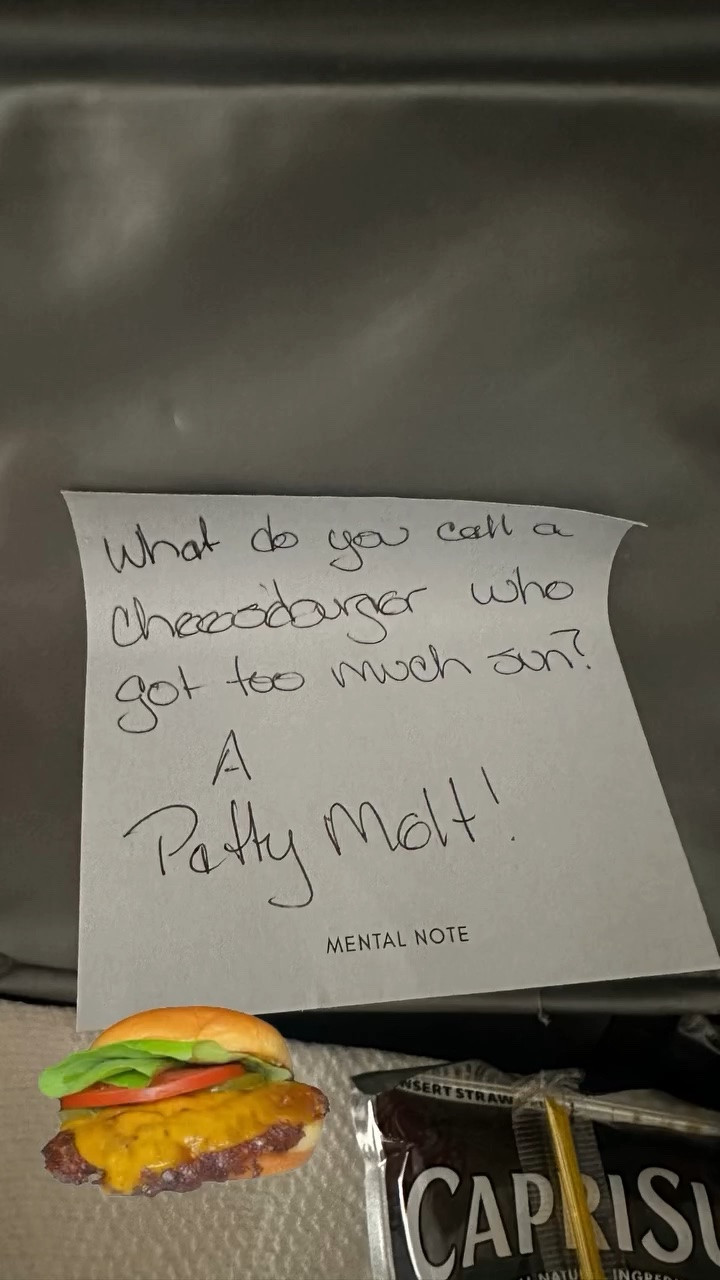 What do you call a
cheeseburger who
got too much sun?
A
Patty Melt!
MENTAL NOTE
NSERT STRAW
CAPRISU